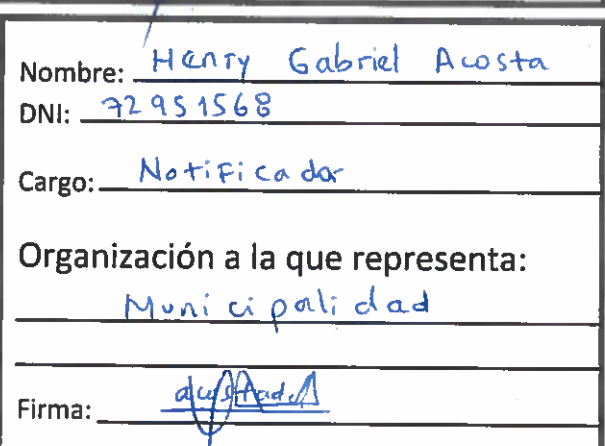 Nombre: Henry Gabriel Acosta
DNI: 72951568
Cargo: Notificador
Organización a la que representa:
Municipalidad
Firma: